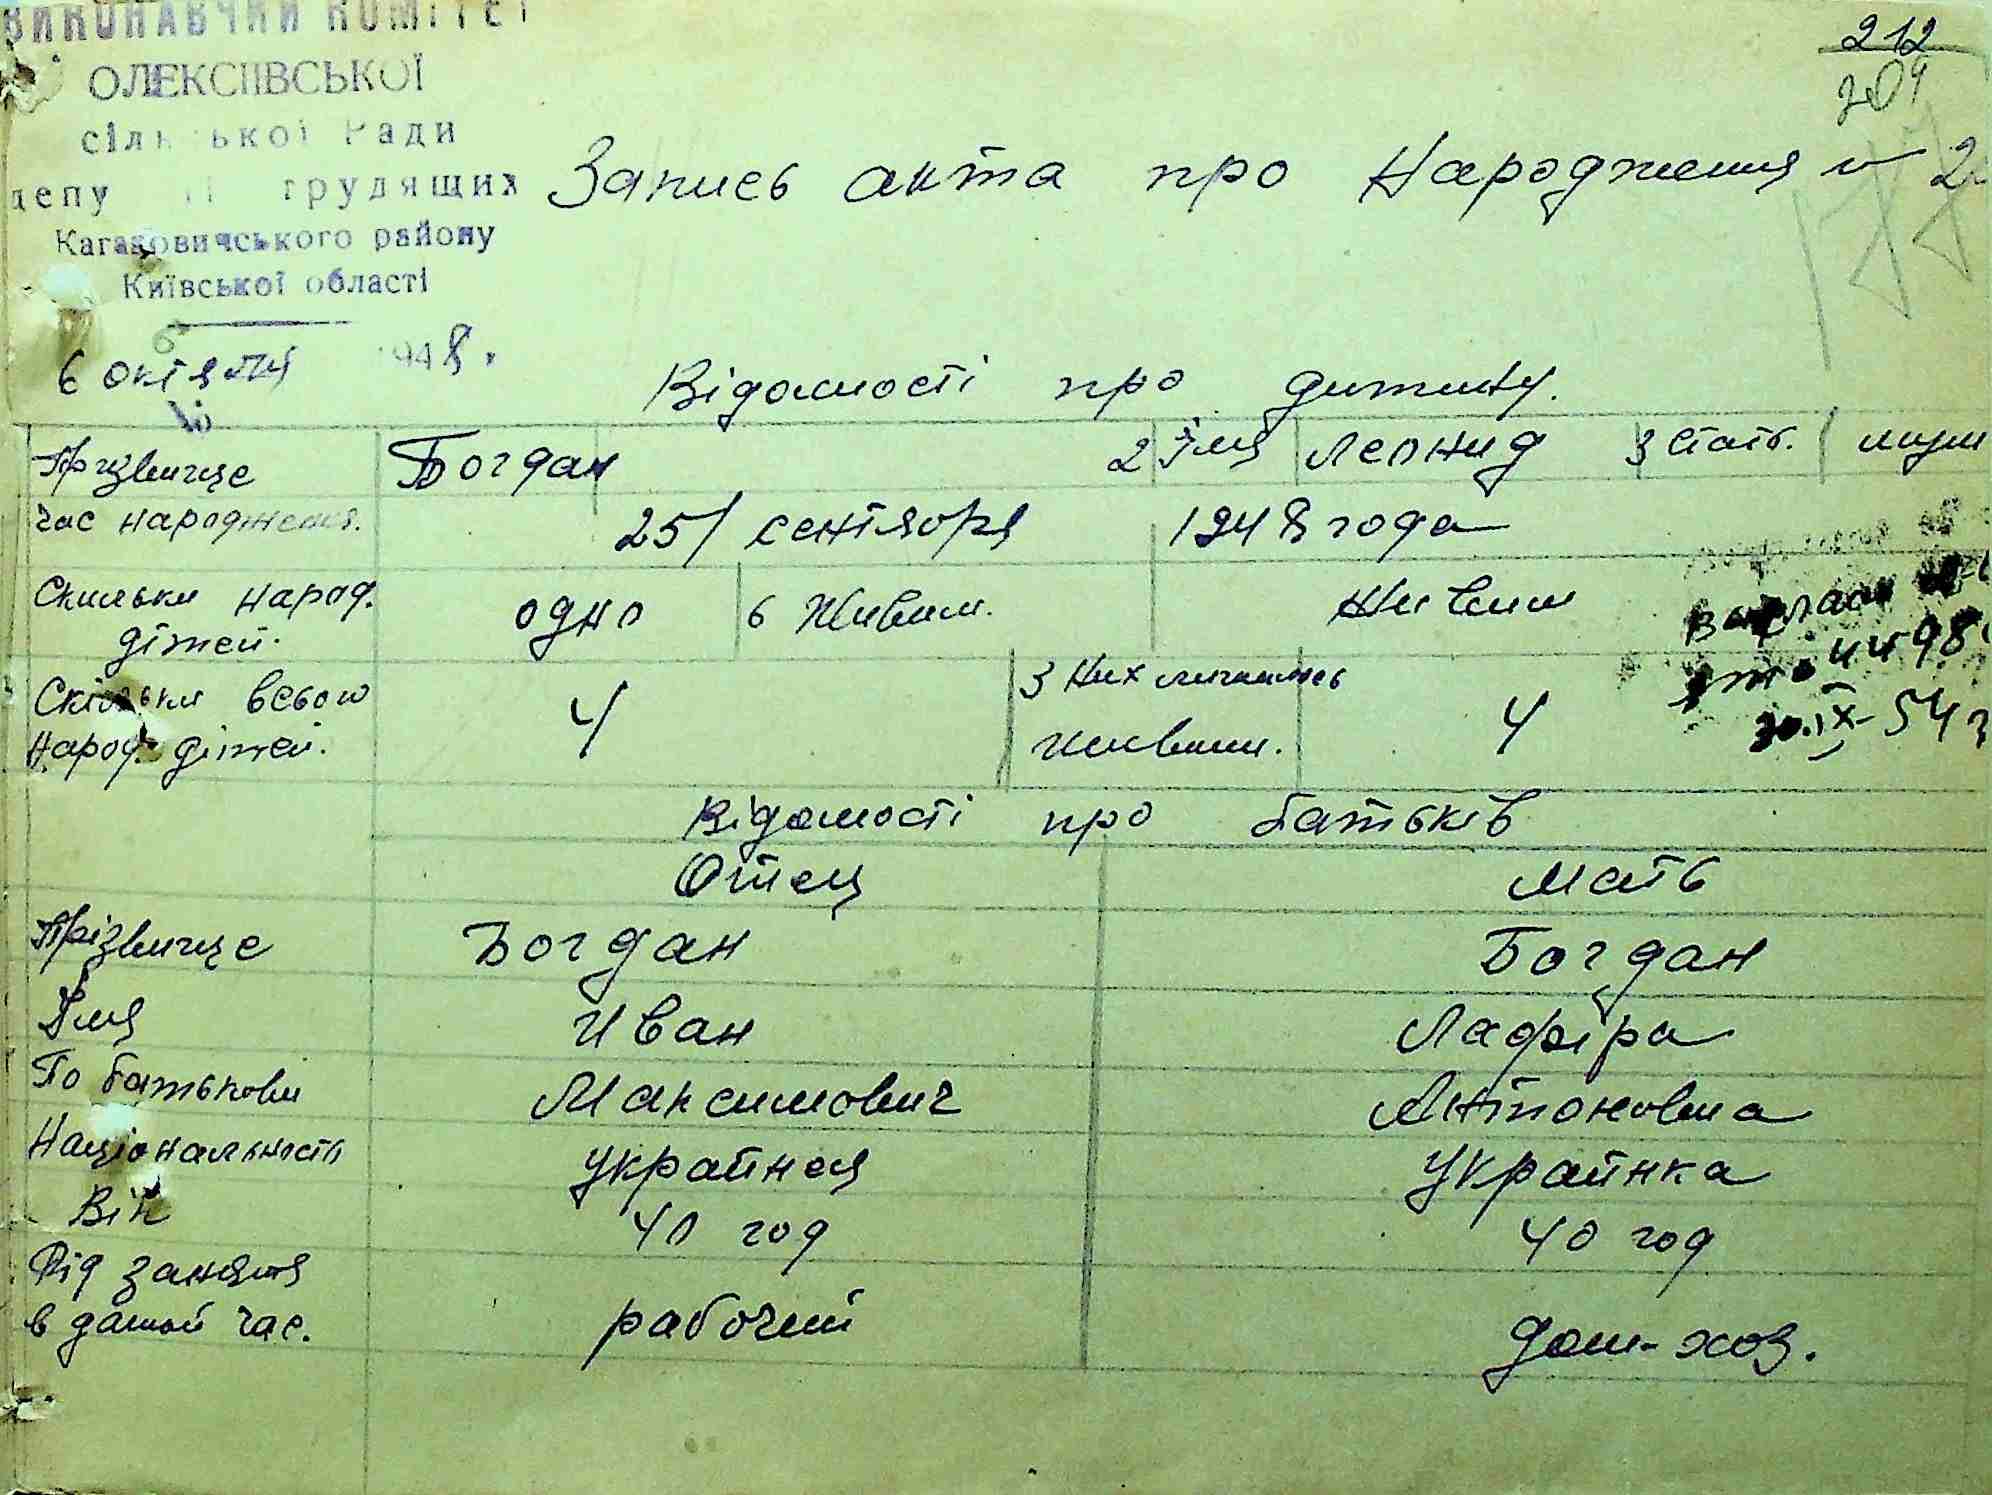 ВИКОНАВЧИЙ КОМІТЕТ
ОЛЕКСІЇВСЬКОЇ
сільської Ради
депу трудящих
Кагановичського району
Київської області
6 октября 1948.
212
209
Запись акта про Народження № 2
177
Відомості про дитину.
Прізвище Богдан 2 Імя Леонид 3 Стать. муж
Час народження. 25/ сентября 1948 года
Скильки народ. дітей. одно 6 Живим. Живым
Скільки всього народ. дітей. 4 З них лишились живыми. 4
4498
30.IX-54 г
Відомості про батьків
Отец Мать
Прізвище Богдан Богдан
Імя Иван Лафіра
По батькови Максимович Антоновна
Національность Украинец Украинка
Вік 40 год 40 год
Рід заняття
в даный час. рабочий дом-хоз.